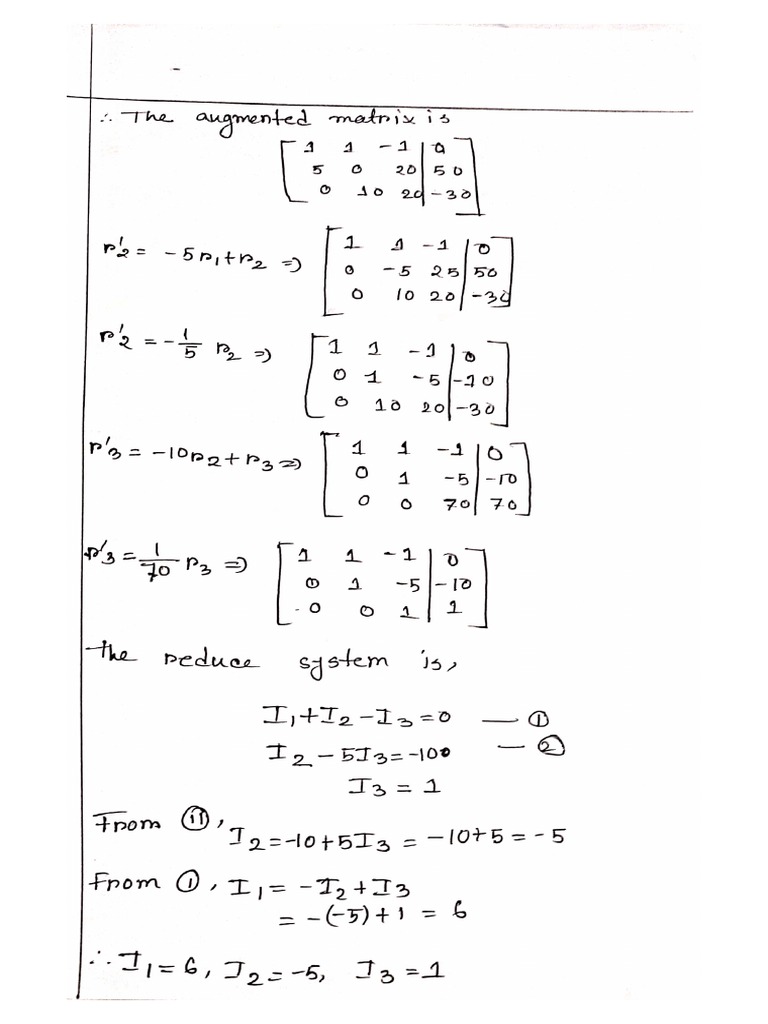 ∴ The augmented matrix is
[ 1 1 -1 | 0
5 0 20 | 50
0 10 20 | -30 ]
r'2 = -5r1+r2 ⇒ [ 1 1 -1 | 0
0 -5 25 | 50
0 10 20 | -30 ]
r'2 = -1/5 r2 ⇒ [ 1 1 -1 | 0
0 1 -5 | -10
0 10 20 | -30 ]
r'3 = -10r2+r3 ⇒ [ 1 1 -1 | 0
0 1 -5 | -10
0 0 70 | 70 ]
r'3 = 1/70 r3 ⇒ [ 1 1 -1 | 0
0 1 -5 | -10
0 0 1 | 1 ]
The reduce system is,
I1+I2-I3=0 — ①
I2-5I3=-100 — ②
I3 = 1
From ⓘⓘ,
I2=-10+5I3 = -10+5 = -5
From ①, I1 = -I2+I3
= -(-5)+1 = 6
∴ I1=6, I2=-5, I3=1